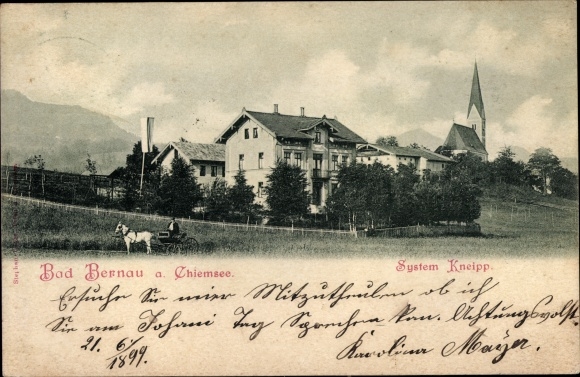 Bad Bernau a. Chiemsee.
System Kneipp.
Ersuche Sie mier Mitzutheulen ob ich
Sie am Johani Tag Sprechen kan. Achtungsvolst.
21. 6/1899 Karolina Mayer.